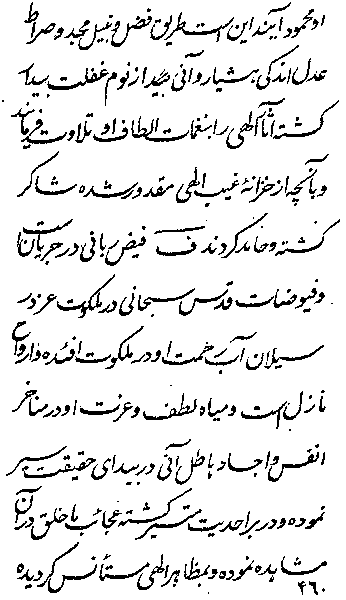 او محمود آیند این است طریق فضل و نیل مجد و صراط
عدل اندکی هشیار و آنی دیگر از نوم غفلت بیدار
گشته آثار الهی را بنغمات الطاف او تلاوت فرمایند
و بآنچه از خزانهٔ غیب الهی مقدور شده شاکر
گشته و حامد کردند ف فیض ربانی در جریان است
و فیوضات قدس سبحانی در ملکوت عز در
سیلان آب رحمت او در ملکوت افئده و ارواح
نازل است و میاه لطف و عزت او در مناخر
انفس و اجساد باطل آنی در بیدای حقیقت سیر
نموده و در بر احدیت متسیر گشته عجائب با خلق در آن
مشاهده نموده و بمظاهر الهی مستأنس گردیده
۴۶۰